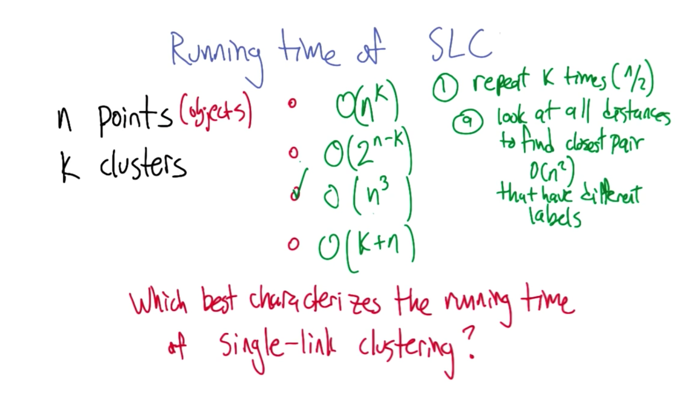 Running time of SLC
n points (objects)
k clusters
O(n^k)
O(2^{n-k})
O(n^3)
O(k+n)
① repeat k times (n/2)
ⓐ look at all distances
to find closest pair
O(n^2)
that have different
labels
Which best characterizes the running time
of single-link clustering?